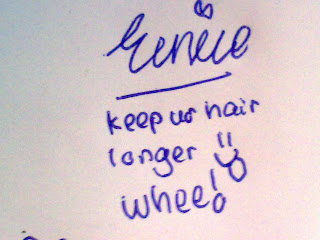 Eunice
keep ur hair
longer !!
whee!